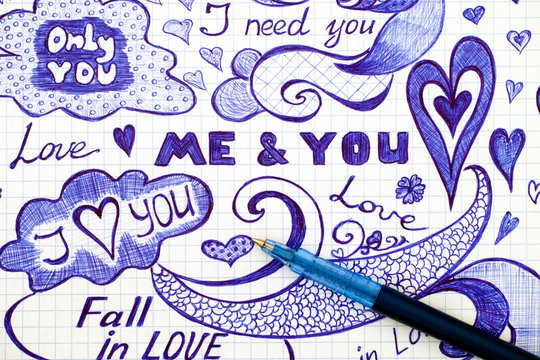 Only
YOU
I need you
Love
ME & YOU
I ♥ YOU
Love
Fall
in LOVE
in Lo